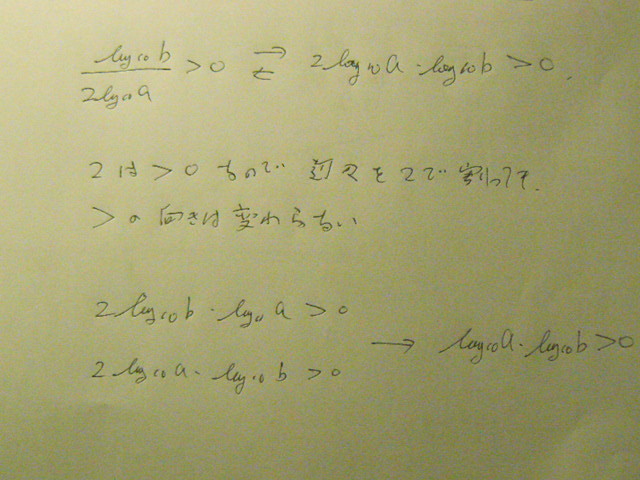 log₁₀b / 2log₁₀a > 0 ⇄ 2log₁₀a・log₁₀b > 0.
2は > 0 なので 両辺を2で割っても、
> の向きは変わらない
2log₁₀b・log₁₀a > 0
2log₁₀a・log₁₀b > 0 → log₁₀a・log₁₀b > 0